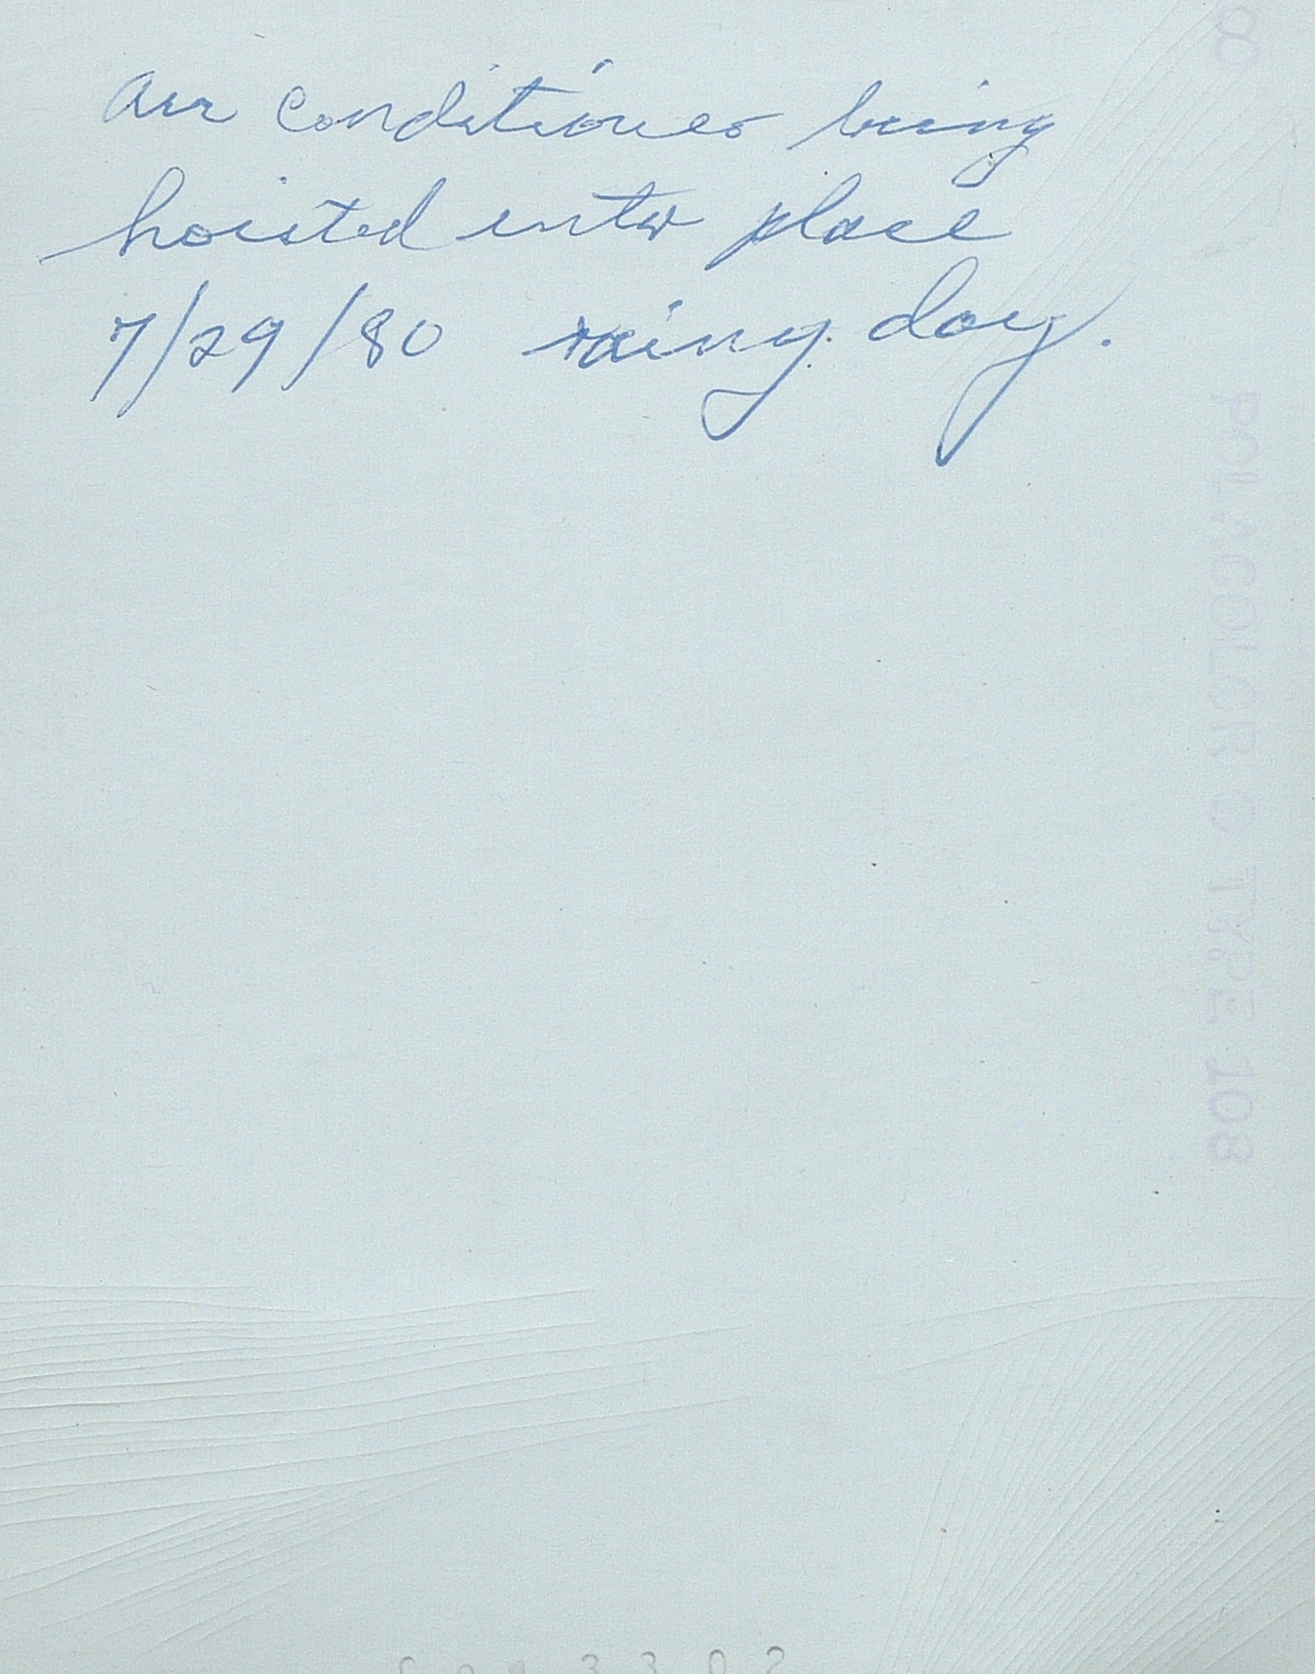 Air Conditioner being
hoisted into place
7/29/80 rainy day.
8
POLACOLOR ® TYPE 108